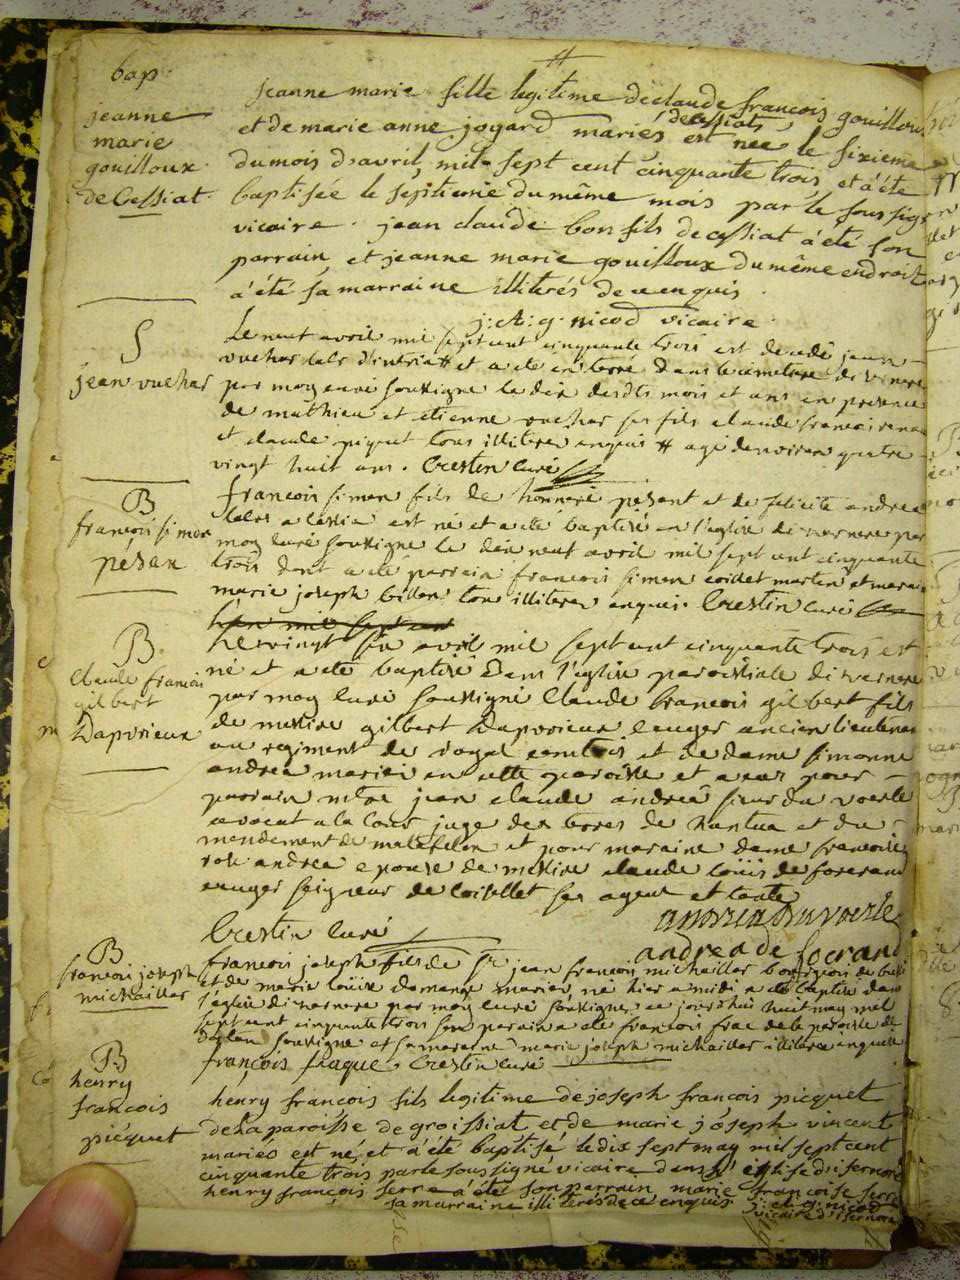 bap:
jeanne
marie
gouilloux
de Cessiat
jeanne marie fille legitime declaude francois gouilloux
de cessiat
et de marie anne joyard mariés est née le sixieme
dumois d'avril, mil sept cent cinquante trois et a été
baptisée le septieme du même mois par le soussigné
vicaire. jean claude bon fils de cessiat a été son
parrain, et jeanne marie gouilloux du même endroit
a été sa marraine illiterés de ce enquis.
j: A: g: nicod vicaire.
S
jean vuchar
Le neuf avril mil sept cent cinquante trois est decedé jean
vuchar et a ete enterré dans le cimetiere
par moy curé soussigné le dix desdts mois et ans en presence
de mathieu et etienne vuchar ses fils claude francois
et claude piquet tous illiteres enquis # agé denviron quatre
vingt huit ans. Crestin curé
B
francois simon
pésan
francois simon fils de honneré pesant et de felicité andrea
est né et a eté baptisé en l'eglise
moy curé soussigné le dix neuf avril mil sept cent cinquante
trois dont a eté parrain francois simon coillet martin et marain
marie joseph billon tous illiteres enquis. Crestin curé
B.
claude francois
gilbert
Daporieux
Le vingt six avril mil sept cent cinquante trois est
né et a eté baptisé dans l'eglise paroissiale
par moy curé soussigné Claude francois gilbert fils
de messire gilbert Daporieux ancien lieutenan
au regiment de royal comtois et de dame simonne
andrea mariés en cette paroisse et a eu pour
parrain mtre jean claude andrea sieur du voerle
avocat a la cour juge des terres de nantua et du
mendement de matafelon et pour maraine dame francoise
rose andrea epouse de messire claude louis de forcrand
seigneur de coisellet
andrea Duvoerle
Crestin curé
andrea de forcrand
B
francois joseph
michaillar
francois joseph fils de Sr jean francois michaillar bourgeois
et de marie louise domange mariés né hier a midi a eté baptisé dans
l'eglise par moy curé soussigné ce jourdhui huit may mil
sept cent cinquante trois son parain a eté francois frac de la paroisse
soussigné et sa maraine marie joseph michaillar illiterée enquise
françois fraque. Crestin curé
B
henry
francois
picquet
henry françois fils legitime de joseph françois picquet
de la paroisse de groissiat et de marie joseph vincent
mariés est né, et a été baptisé le dix sept may mil sept cent
cinquante trois par le soussigné vicaire dans l'église d'isernore
henry françois serre a été son parrain marie francoise serre
sa marraine illiterés de ce enquis j: A: g: nicod
vicaire d'isernore